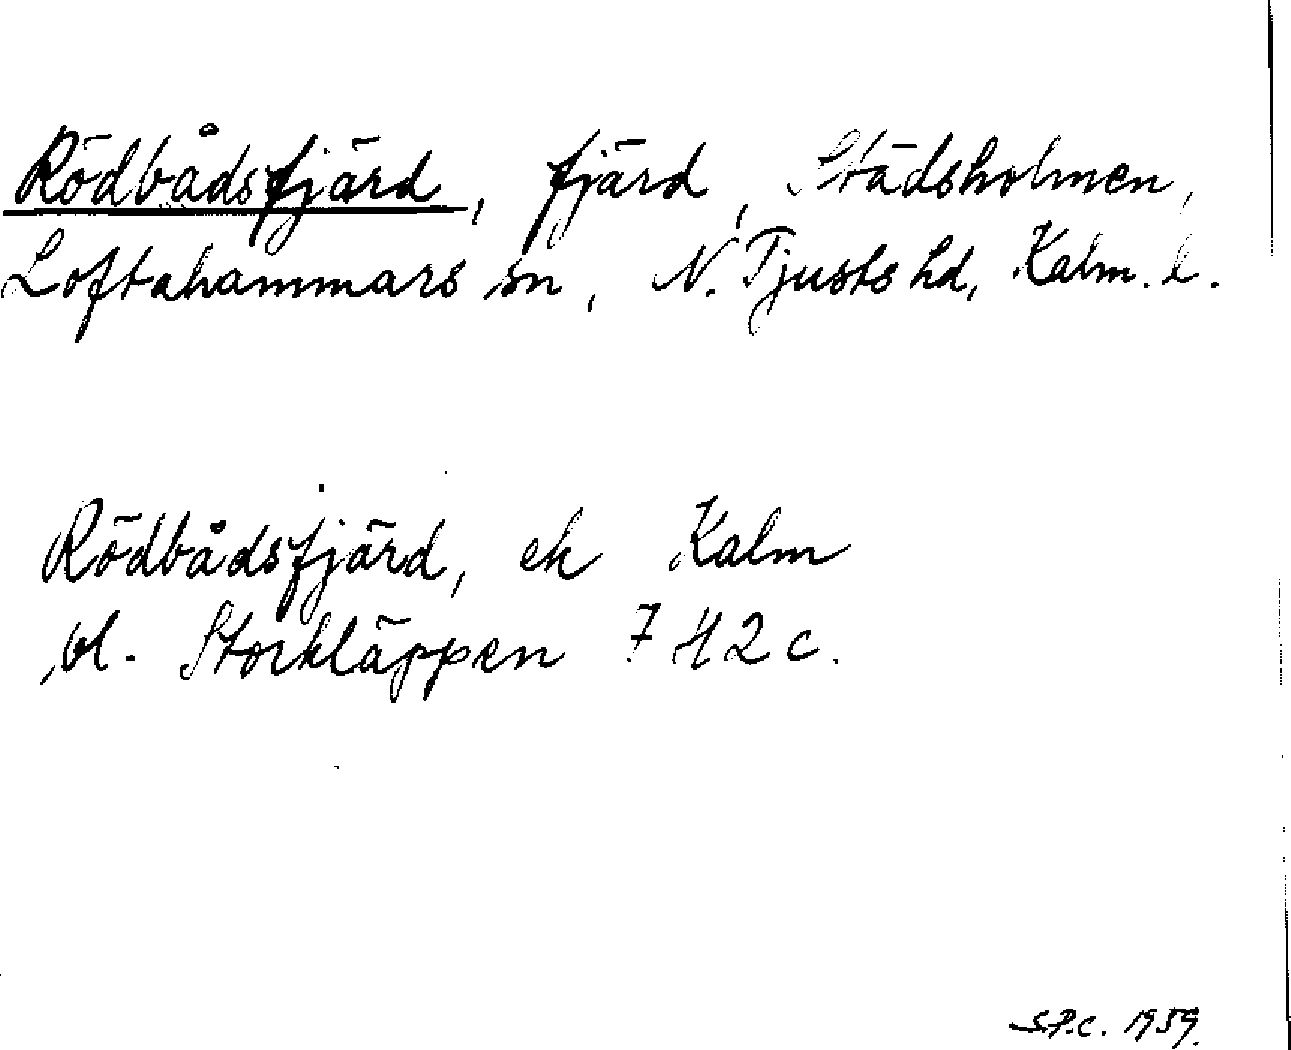 Rödbådsfjärd, fjärd, Städsholmen,
Loftahammars sn, N. Tjusts hd, Kalm. l.
Rödbådsfjärd, ek Kalm
bl. Storkläppen 7 H 2 c.
S.P.C. 1959.